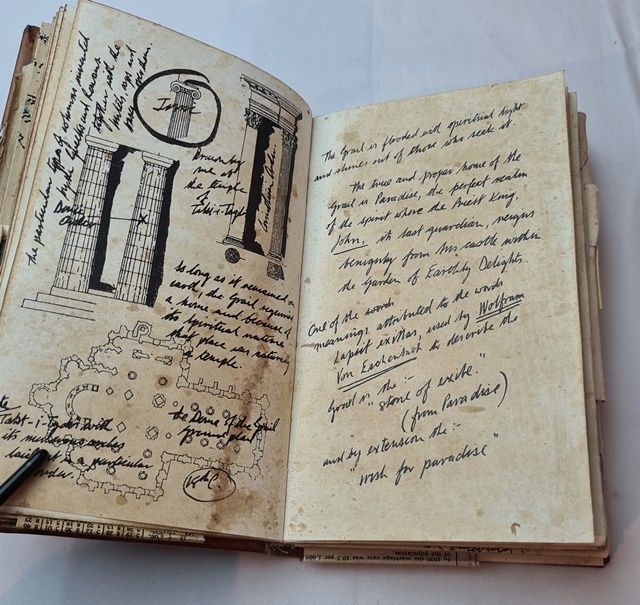 the particular type of column invented
by high
other and the
Ionic
Drawn by
me at
the temple
Takt-i-Taqdis
Corinthian Order
Doric
Order
X
So long as it remained on
earth, the Grail required
a home and because of
its spiritual nature
that place was naturally
a temple.
the Dome of the Grail
ground plan
Takt-i-Taqdis with
its numerous
laid out in a particular
order.
The Grail is flooded with spiritual light
and shines out of those who seek it.
The true and proper home of the
Grail is Paradise, the perfect realm
of the spirit where the Priest King,
John, its last guardian, reigns
benignly from his castle within
the Garden of Earthly Delights.
One of the words
meanings attributed to the words
Lapsit exillas, used by Wolfram
Von Eschenbach to describe the
Grail is the :-
"stone of exile."
(from Paradise)
and by extension the :-
"wish for paradise"
In 1920 the marriage rate was 10.3 per 1,000
of the population.